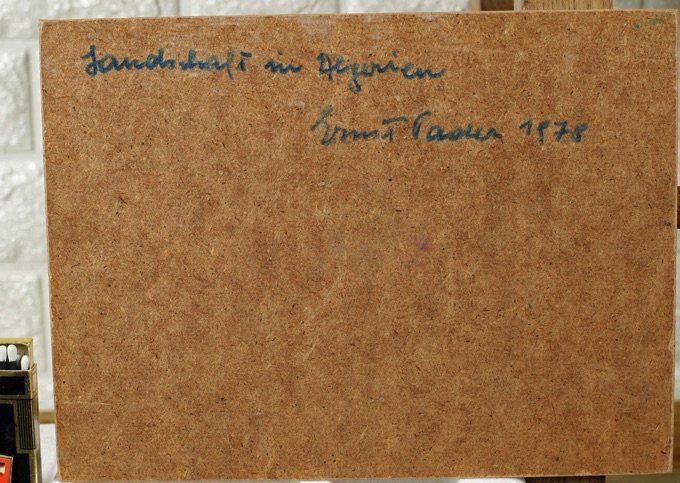 Landschaft in Algerien
Ernst Pader 1978